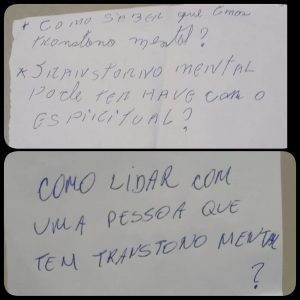 * COMO SABER que temos
transtono mental?
* TRANSTORNO MENTAL
PODE TER HAVE com o
ESPIRITUAL?
COMO LIDAR COM
UMA PESSOA QUE
TEM TRANSTONO MENTAL
?